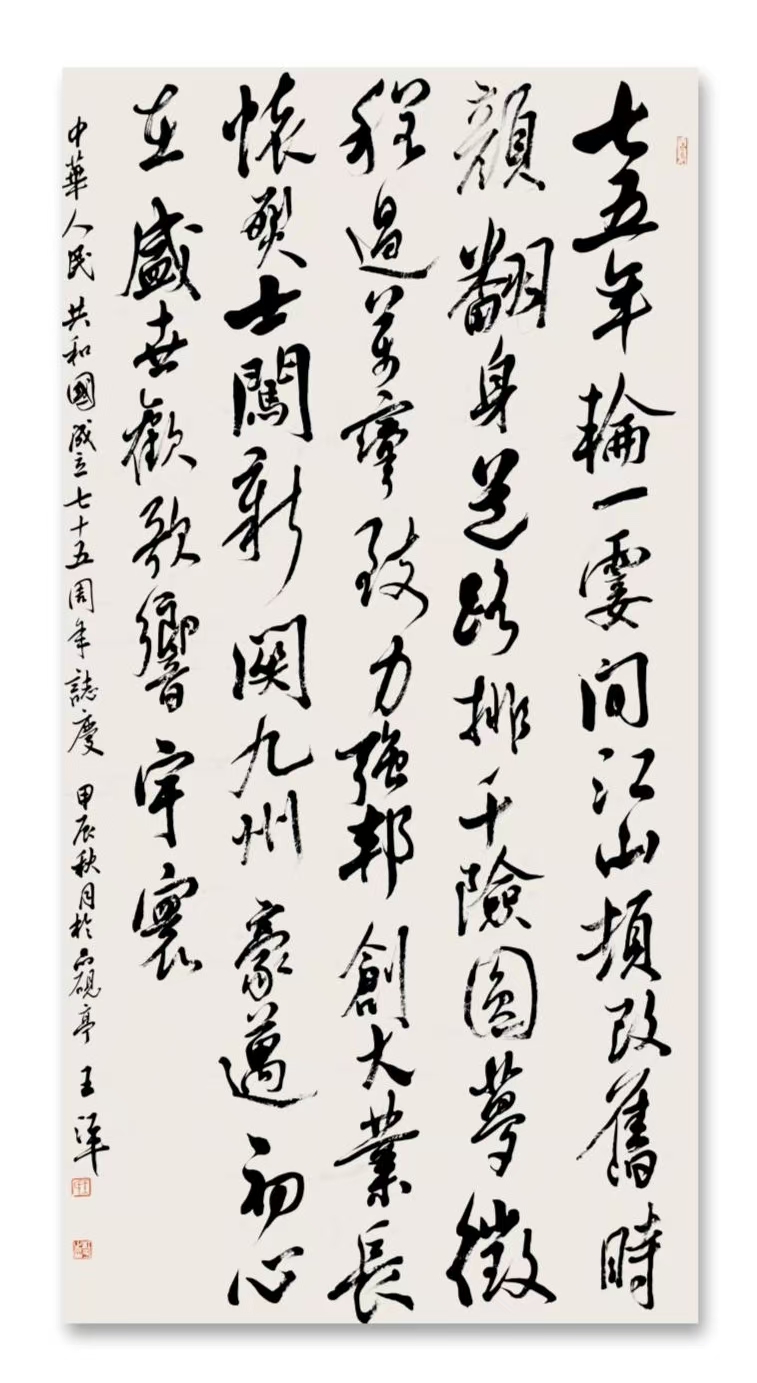 七五年輪一霎間江山頻改舊時
顔翻身道路排千險圓夢徵
程過萬彎致力強邦創大業長
懷賢士闖新関九州豪邁初心
在盛世歡歌響宇寰
中華人民共和國成立七十五周年誌慶 甲辰秋月於硯亭 王